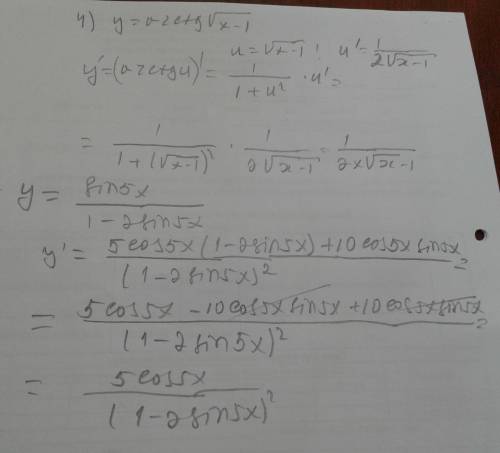 4) y = arctg √x-1
u = √x-1 ; u' = 1/(2√x-1)
y' = (arctg u)' = 1/(1+u²) · u' =
= 1/(1+(√x-1)²) · 1/(2√x-1) = 1/(2x√x-1)
y = sin5x/(1-2sin5x)
y' = (5cos5x(1-2sin5x)+10cos5x sin5x)/(1-2sin5x)² =
= (5cos5x -10cos5x sin5x +10cos5x sin5x)/(1-2sin5x)² =
= 5cos5x/(1-2sin5x)²